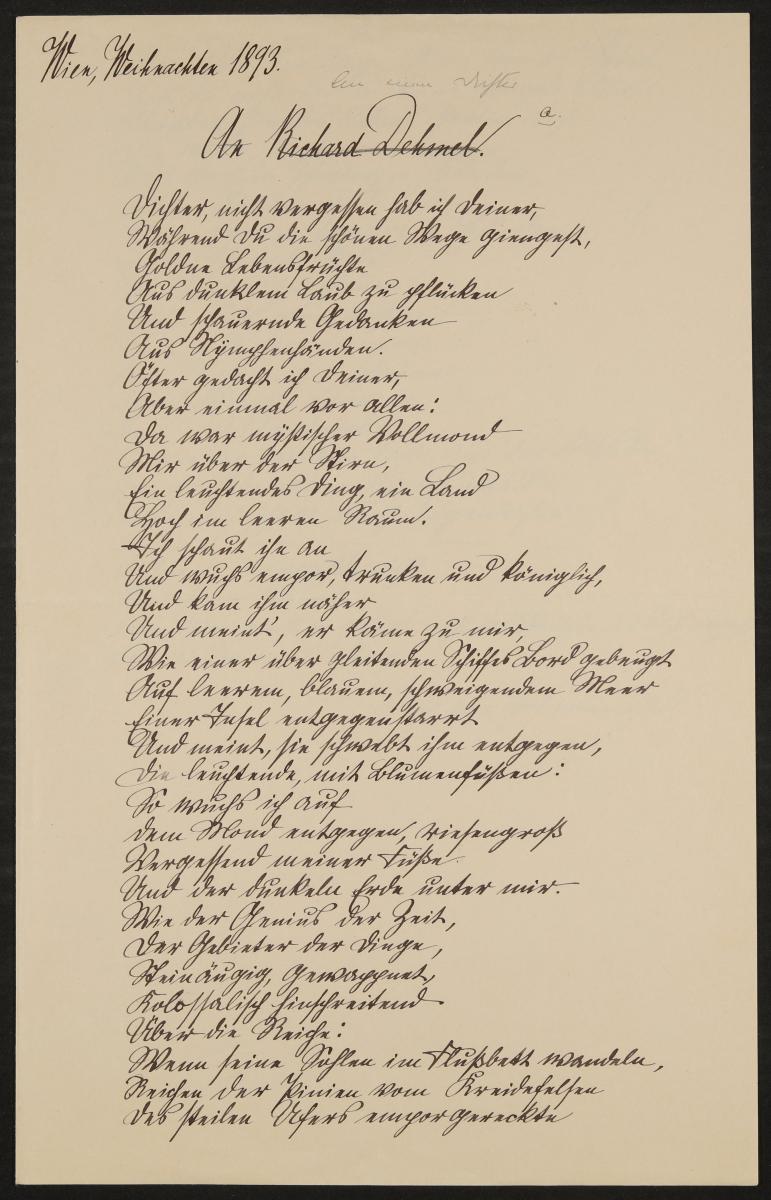 Wien, Weihnachten 1893.
An Richard Dehmel.
a.
Dichter, nicht vergessen hab ich Deiner,
Während Du die schönen Wege giengest,
Goldne Lebensfrüchte
Aus dunklem Laub zu pflücken
Und schauernde Gedanken
Aus Nymphenhänden.
Öfter gedacht ich Deiner,
Aber einmal vor allen:
Da war mystischer Vollmond
Mir über der Stirn,
Ein leuchtendes Ding, ein Land
Hoch im leeren Raum.
Ich schaut ihn an
Und wuchs empor, trunken und königlich,
Und kam ihm näher
Und meint', er käme zu mir,
Wie einer über gleitenden Schiffes Bord gebeugt
Auf leerem, blauem, schweigendem Meer
Einer Insel entgegenstarrt
Und meint, sie schwebt ihm entgegen,
Die leuchtende, mit Blumenfüßen:
So wuchs ich auf
Dem Mond entgegen, riesengroß
Vergessend meiner Füße
Und der dunkeln Erde unter mir.
Wie der Genius der Zeit,
Der Gebieter der Dinge,
Steinäugig, gewappnet,
Kolossalisch hinschreitend
Über die Reiche:
Wenn seine Sohlen im Flußbett wandeln,
Reichen der Pinien vom Kreidefelsen
Des steilen Ufers emporgereckte